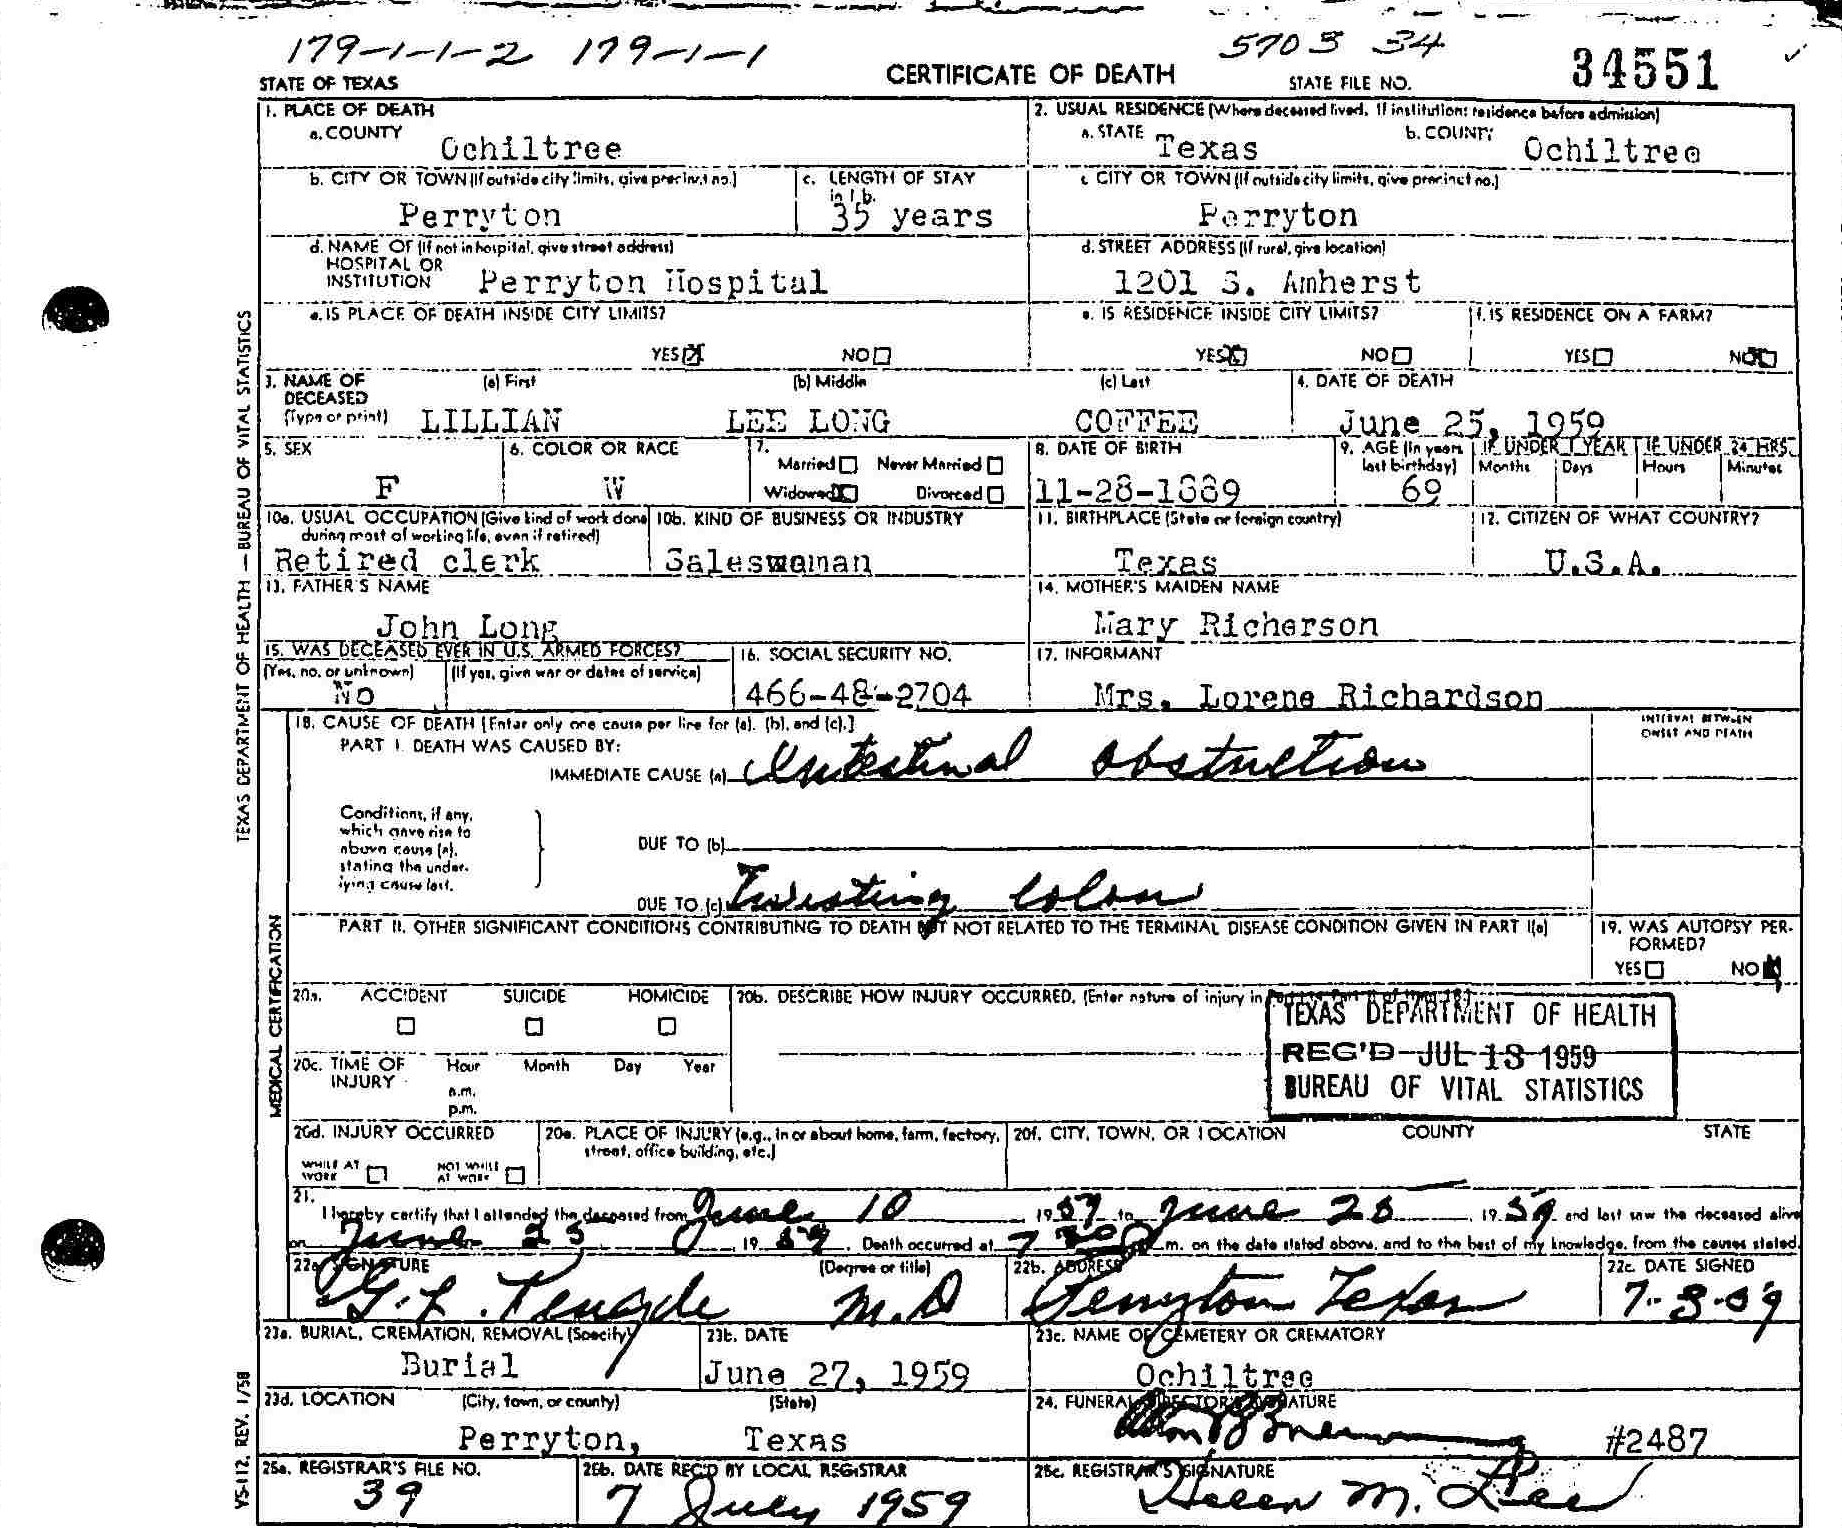 179-1-1-2 179-1-1 5703 34
STATE OF TEXAS CERTIFICATE OF DEATH STATE FILE NO. 34551
1. PLACE OF DEATH
a. COUNTY
Ochiltree
2. USUAL RESIDENCE (Where deceased lived. If institution: residence before admission)
a. STATE Texas b. COUNTY Ochiltree
b. CITY OR TOWN (If outside city limits, give precinct no.)
Perryton
c. LENGTH OF STAY in 1 b.
35 years
c. CITY OR TOWN (If outside city limits, give precinct no.)
Perryton
d. NAME OF (If not in hospital, give street address)
HOSPITAL OR
INSTITUTION Perryton Hospital
d. STREET ADDRESS (If rural, give location)
1201 S. Amherst
e. IS PLACE OF DEATH INSIDE CITY LIMITS?
YES NO
e. IS RESIDENCE INSIDE CITY LIMITS?
YES NO
f. IS RESIDENCE ON A FARM?
YES NO
3. NAME OF DECEASED (Type or print)
(a) First (b) Middle (c) Last
LILLIAN LEE LONG COFFEE
4. DATE OF DEATH
June 25, 1959
5. SEX
F
6. COLOR OR RACE
W
7.
Married Never Married
Widowed Divorced
8. DATE OF BIRTH
11-28-1889
9. AGE (In years last birthday)
69
IF UNDER 1 YEAR
Months Days
IF UNDER 24 HRS.
Hours Minutes
10a. USUAL OCCUPATION (Give kind of work done during most of working life, even if retired)
Retired clerk
10b. KIND OF BUSINESS OR INDUSTRY
Saleswoman
11. BIRTHPLACE (State or foreign country)
Texas
12. CITIZEN OF WHAT COUNTRY?
U.S.A.
13. FATHER'S NAME
John Long
14. MOTHER'S MAIDEN NAME
Mary Richerson
15. WAS DECEASED EVER IN U.S. ARMED FORCES?
(Yes, no, or unknown) (If yes, give war or dates of service)
No
16. SOCIAL SECURITY NO.
466-48-2704
17. INFORMANT
Mrs. Lorene Richardson
18. CAUSE OF DEATH [Enter only one cause per line for (a), (b), and (c).]
PART I. DEATH WAS CAUSED BY:
IMMEDIATE CAUSE (a) Intestinal Obstruction
INTERVAL BETWEEN
ONSET AND DEATH
Conditions, if any,
which gave rise to
above cause (a),
stating the under-
lying cause last.
DUE TO (b)
DUE TO (c) Twisting Colon
PART II. OTHER SIGNIFICANT CONDITIONS CONTRIBUTING TO DEATH BUT NOT RELATED TO THE TERMINAL DISEASE CONDITION GIVEN IN PART I(a)
19. WAS AUTOPSY PER-
FORMED?
YES NO
20a. ACCIDENT SUICIDE HOMICIDE
20b. DESCRIBE HOW INJURY OCCURRED. (Enter nature of injury in
TEXAS DEPARTMENT OF HEALTH
REC'D JUL 13 1959
BUREAU OF VITAL STATISTICS
20c. TIME OF INJURY
Hour Month Day Year
a.m.
p.m.
20d. INJURY OCCURRED
WHILE AT WORK NOT WHILE AT WORK
20e. PLACE OF INJURY (e.g., in or about home, farm, factory,
street, office building, etc.)
20f. CITY, TOWN, OR LOCATION COUNTY STATE
21.
I hereby certify that I attended the deceased from June 10 1959 to June 25, 1959 and last saw the deceased alive
on June 25, 1959. Death occurred at 7 30 P m. on the date stated above, and to the best of my knowledge, from the causes stated.
22a. SIGNATURE (Degree or title)
G. L. M.D
22b. ADDRESS
Perryton Texas
22c. DATE SIGNED
7-3-59
23a. BURIAL, CREMATION, REMOVAL (Specify)
Burial
23b. DATE
June 27, 1959
23c. NAME OF CEMETERY OR CREMATORY
Ochiltree
23d. LOCATION (City, town, or county) (State)
Perryton, Texas
24. FUNERAL DIRECTOR'S SIGNATURE
#2487
25a. REGISTRAR'S FILE NO.
39
25b. DATE REC'D BY LOCAL REGISTRAR
7 July 1959
25c. REGISTRAR'S SIGNATURE
Helen M. Lee
TEXAS DEPARTMENT OF HEALTH — BUREAU OF VITAL STATISTICS
MEDICAL CERTIFICATION
VS-112, REV. 1/58